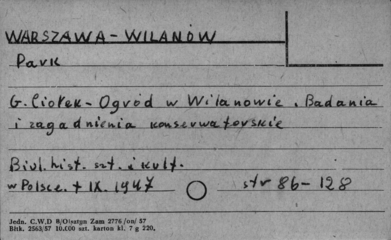 WARSZAWA - WILANÓW
Park
G. Ciołek - Ogród w Wilanowie. Badania
i zagadnienia konserwatorskie
Biul. hist. szt. i kult.
w Polsce. t IX. 1947 str 86 - 128
Jedn. C.W.D 8/Olsztyn Zam 2776/on/57
Bltk. 2563/57 10.000 szt. karton kl. 7 g 220,